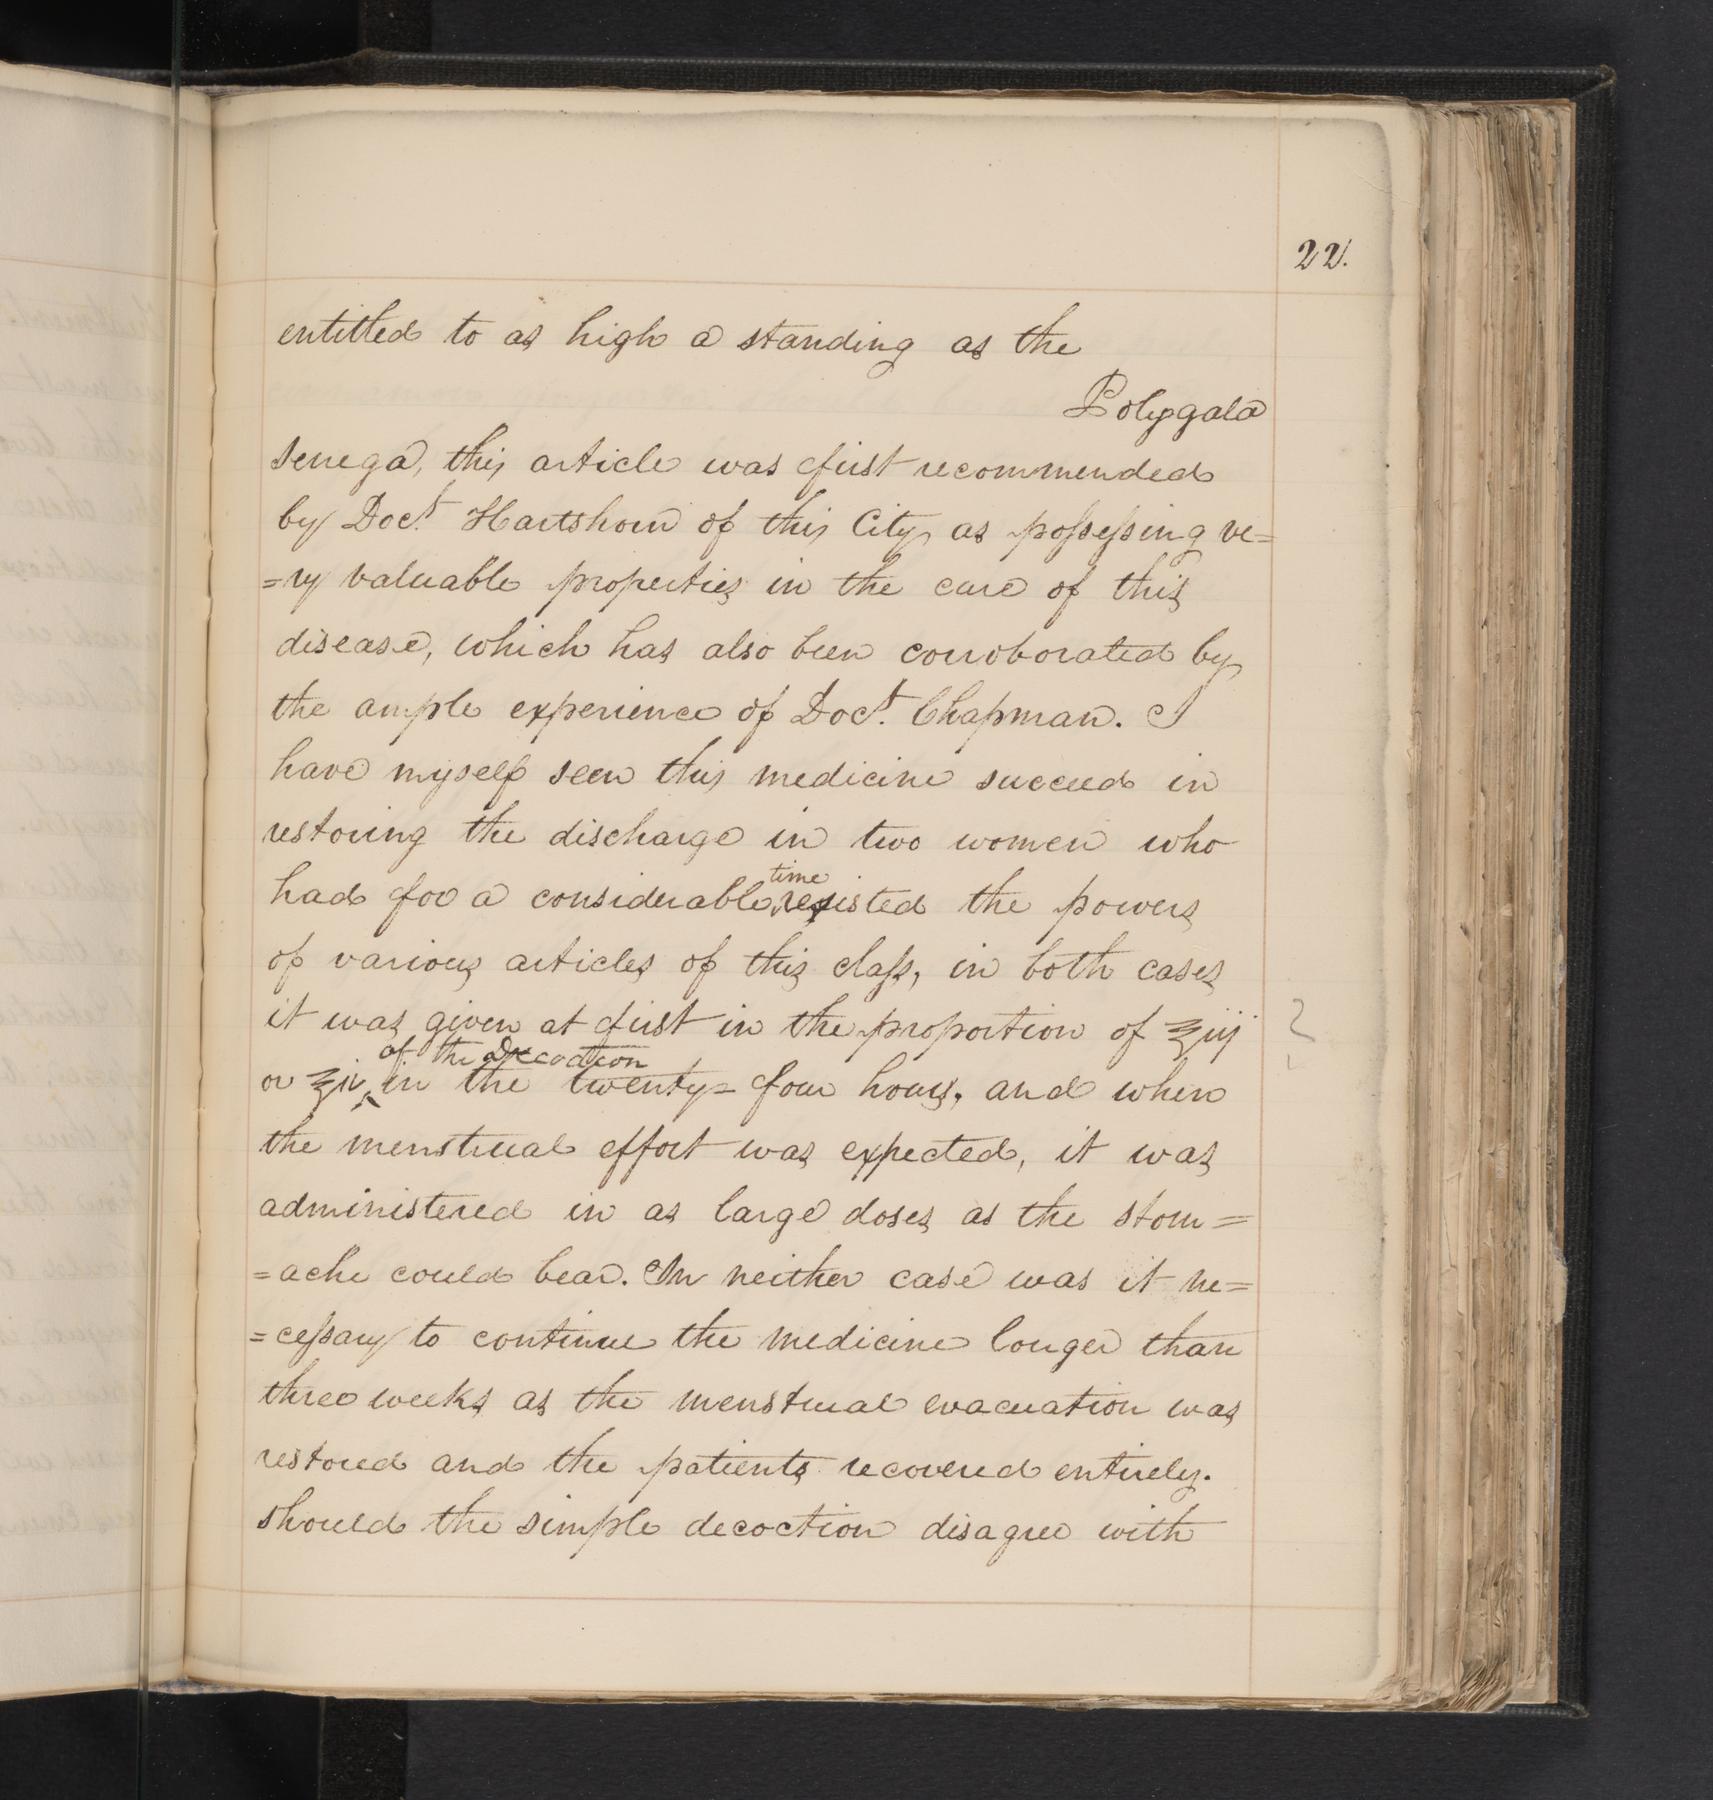 22.
entitled to as high a standing as the
Polygala
senega, this article was first recommended
by Doct. Hartshorn of this City, as possessing ve=
=ry valuable properties in the cure of this
disease, which has also been corroborated by
the ample experience of Doct. Chapman. I
have myself seen this medicine succeed in
restoring the discharge in two women who
time
had for a considerable resisted the powers
of various articles of this class, in both cases
it was given at first in the proportion of ℥iij
of the Decoction
or ℥iv in the twenty=four hours, and when
the menstrual effort was expected, it was
administered in as large doses as the stom=
=ache could bear. In neither case was it ne=
=cessary to continue the medicine longer than
three weeks as the menstrual evacuation was
restored and the patients recovered entirely.
should the simple decoction disagree with